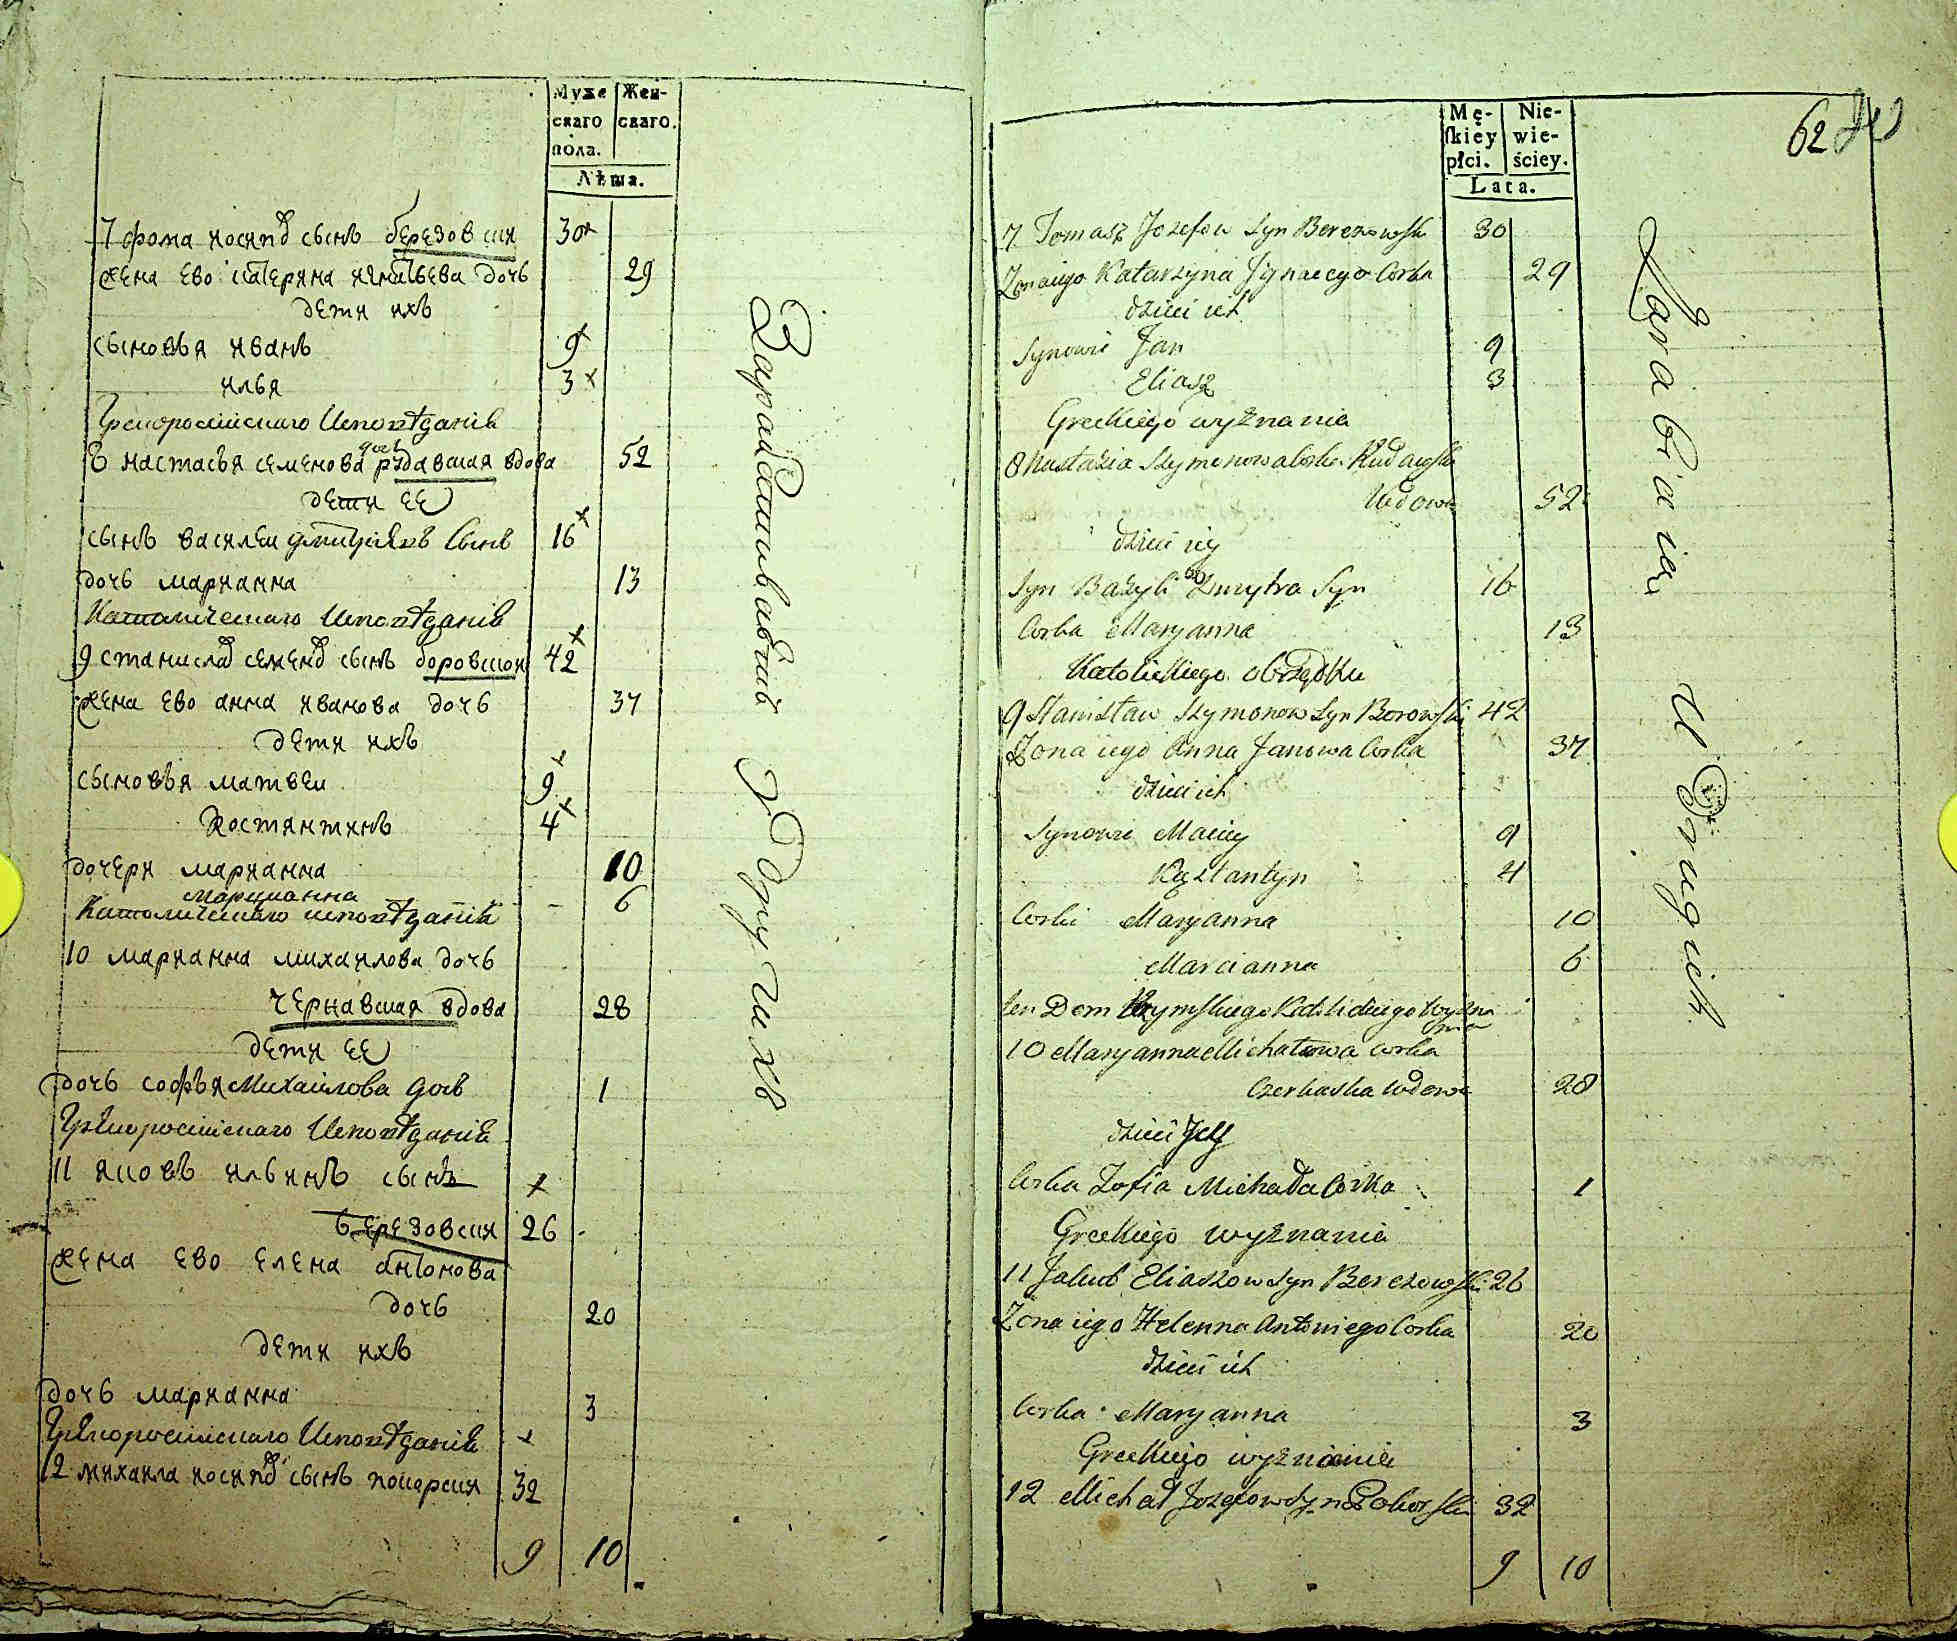 Муже
скаго
пола.
Жен-
скаго.
Лѣта.
7 фома иосипов сынъ березовски 30
жена ево катерина игнатьева дочь 29
дети ихъ
сыновья иванъ 9
илья 3
Грекоросийскаго Исповѣданія
8 настасья семенова дочь рудавская вдова 52
дети ее
сынъ василеи дмитріевъ Сынъ 16
дочь марианна 13
Католическаго Исповѣданія
9 станислав семенов сынъ боровскои 42
жена ево анна иванова дочь 37
дети ихъ
сыновья матвеи 9
Костянтинъ 4
дочери марианна 10
марцианна 6
Католическаго исповѣданія
10 марианна михаилова дочь
чернавская вдова 28
дети ее
дочь софья Михайлова дочь 1
Грекоросийскаго Исповѣданія
11 яковъ ильинъ сынъ
березовски 26
жена ево елена антонова
дочь 20
дети ихъ
дочь марианна 3
Грекоросийскаго Исповѣданія
12 михаила иосипов сынъ покорски 32
9 10
Зарабатывавшиѣ У Другихъ
Mę-
skiey
płci.
Nie-
wie-
ściey.
Lata.
62
7 Tomasz Jozefow Syn Berezowski 30
Zona iego Katarzyna Jgnacego Corka 29
dzieci ich
Synowie Jan 9
Eliasz 3
Greckiego wyznania
8 Nastazia Szymonowa Corka Rudawska
Wdowa 52
dzieci iey
Syn Bazyli Dmytra Syn 16
Corka Maryanna 13
Katolickiego obrządku
9 Stanisław Szymonow Syn Borowski 42
Zona iego Anna Janowa Corka 37
dzieci ich
Synowie Maciey 9
Kąstantyn 4
Corki Maryanna 10
Marcianna 6
Ten Dom Rzymskiego Katolickiego Wyzna
nia
10 Maryanna Michałowa Corka
Czerkaska Wdowa 28
dzieci Jey
Corka Zofia Michała Corka 1
Greckiego wyznania
11 Jakub Eliaszow Syn Berezowski 26
Zona iego Helenna Antoniego Corka 20
dzieci ich
Corka Maryanna 3
Greckiego wyznania
12 Michał Jozefow Syn Pokorski 32
9 10
Zarabiaia U Drugich